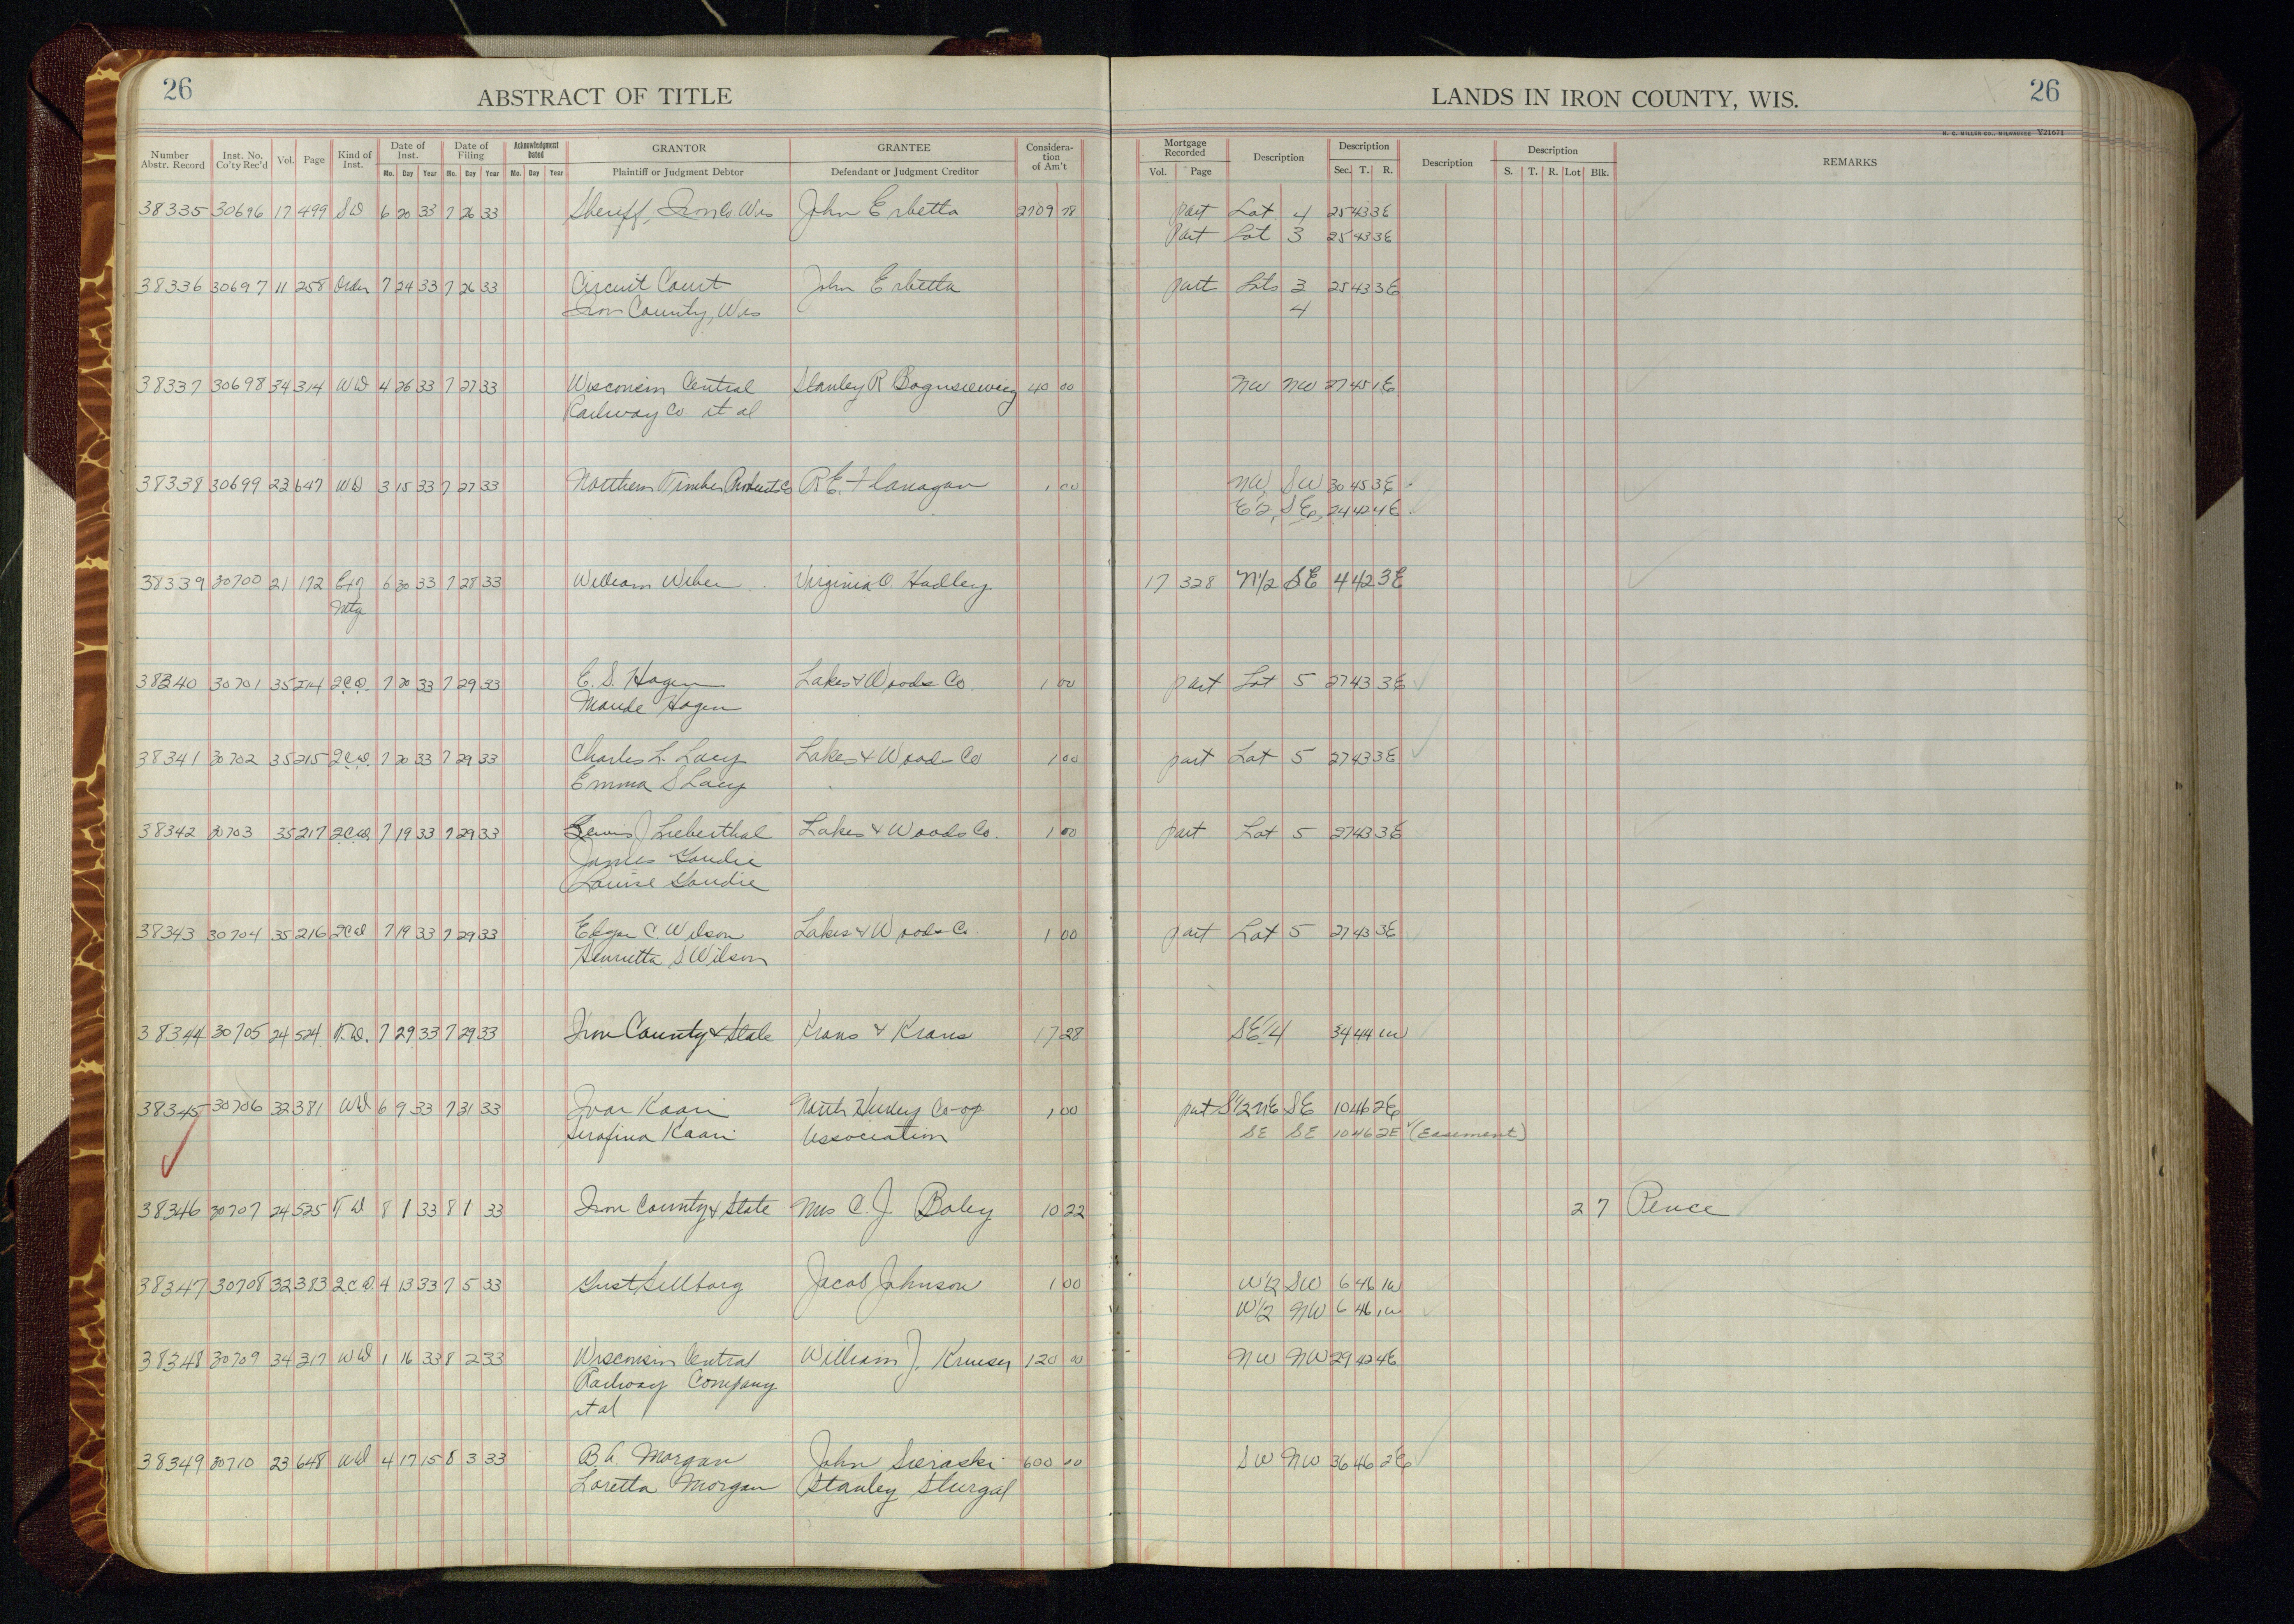 26 ABSTRACT OF TITLE
LANDS IN IRON COUNTY, WIS. 26
H. C. MILLER CO., MILWAUKEE Y21671
Number Abstr. Record Inst. No. Co'ty Rec'd Vol. Page Kind of Inst. Date of Inst. Mo. Day Year Date of Filing Mo. Day Year Acknowledgment Dated Mo. Day Year GRANTOR Plaintiff or Judgment Debtor GRANTEE Defendant or Judgment Creditor Considera-tion of Am't
Mortgage Recorded Vol. Page Description Description Sec. T. R. Description Description S. T. R. Lot Blk. REMARKS
38335 30696 17 499 SD 6 20 33 7 26 33 Sheriff, Iron Co. Wis John Erbetta 2709 78 part Lot 4 25 43 3E
Part Lot 3 25 43 3E
38336 30697 11 258 Order 7 24 33 7 26 33 Circuit Court John Erbetta part Lots 3 25 43 3E
Iron County, Wis 4
38337 30698 34 314 WD 4 26 33 7 27 33 Wisconsin Central Stanley R 40 00 NW NW 27 45 1E
Railway Co et al
38338 30699 23 647 WD 3 15 33 7 27 33 Northern Timber Products Co R.E. Flanagan 1 00 NW, SW 30 45 3E
E1/2, SE, 24 42 4E
38339 30700 21 172 Ext 6 30 33 7 28 33 William Weber Virginia O. Hadley 17 328 N1/2 SE 4 42 3E
Mtg
38340 30701 35 214 2CD. 7 20 33 7 29 33 E. S. Hagen Lakes & Woods Co. 1 00 part Lot 5 27 43 3E
Maude Hagen
38341 30702 35 215 2CD. 7 20 33 7 29 33 Charles L. Lacy Lakes & Woods Co 1 00 part Lot 5 27 43 3E
Emma S Lacy
38342 30703 35 217 2CD. 7 19 33 7 29 33 Lewis J Lieberthal Lakes & Woods Co. 1 00 part Lot 5 27 43 3E
James Goudie
Louise Goudie
38343 30704 35 216 2CD 7 19 33 7 29 33 Edgar C. Wilson Lakes & Woods Co. 1 00 part Lot 5 27 43 3E
Henrietta S Wilson
38344 30705 24 524 T.D. 7 29 33 7 29 33 Iron County & State Krans & Krans 17 28 SE1/4 34 44 1W
38345 30706 32 381 WD 6 9 33 7 31 33 Ivar Kaari North Hurley Co-op 1 00 part S1/2 NE SE 10 46 2E
Serafina Kaari Association SE SE 10 46 2E (Easement)
38346 30707 24 525 T D 8 1 33 8 1 33 Iron County & State Mrs C. J. Boley 10 22 2 7 Pence
38347 30708 32 383 2CD. 4 13 33 7 5 33 Gust Sellborg Jacob Johnson 1 00 W1/2 SW 6 46 1W
W1/2 NW 6 46 1W
38348 30709 34 317 WD 1 16 33 8 2 33 Wisconsin Central William J. 120 00 NW NW 29 42 4E
Railway Company
et al
38349 30710 23 648 WD 4 17 15 8 3 33 B.A. Morgan John Sieraski 600 00 SW NW 36 46 2E
Loretta Morgan Stanley Sturgal